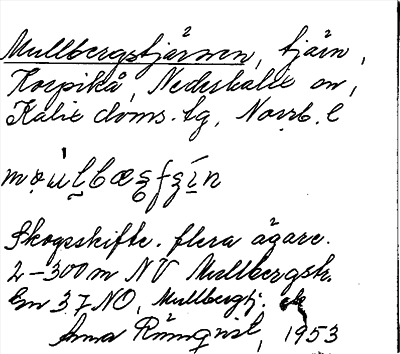 Mullbergstjärnen, tjärn,
Korpikå, Nederkalix sn,
Kalix doms. tg, Norrb. l
Skogsskifte. flera ägare.
2-300 m NV Mullbergsk.
Em 37 NO, Mullbergtj.
Anna Rönnqvist, 1953